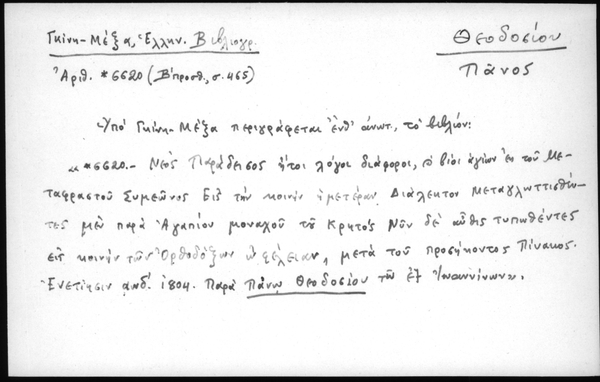 Γκίνη-Μέξα, Ἑλλην. Βιβλιογρ.
Θεοδοσίου
Ἀριθ. *6620 (Β΄ προσθ., σ. 465)
Πᾶνος
Ὑπό Γκίνη-Μέξα περιγράφεται ἔνθ' ἀνωτ., τό βιβλίον:
«*6620.- Νέος Παράδεισος ἤτοι λόγοι διάφοροι, βίοι ἁγίων ἐκ τοῦ Με-
ταφραστοῦ Συμεῶνος Εἰς τὴν κοινὴν ἡμετέραν Διάλεκτον Μεταγλωττισθέν-
τες μὲν παρά Ἀγαπίου μοναχοῦ τοῦ Κρητός Νῦν δὲ αὖθις τυπωθέντες
εἰς κοινὴν τῶν Ὀρθοδόξων ὠφέλειαν, μετά τοῦ προσήκοντος Πίνακος.
Ἐνετίησιν ͵αωδ΄. 1804. Παρά Πάνῳ Θεοδοσίου τοῦ ἐξ Ἰωαννίνων».